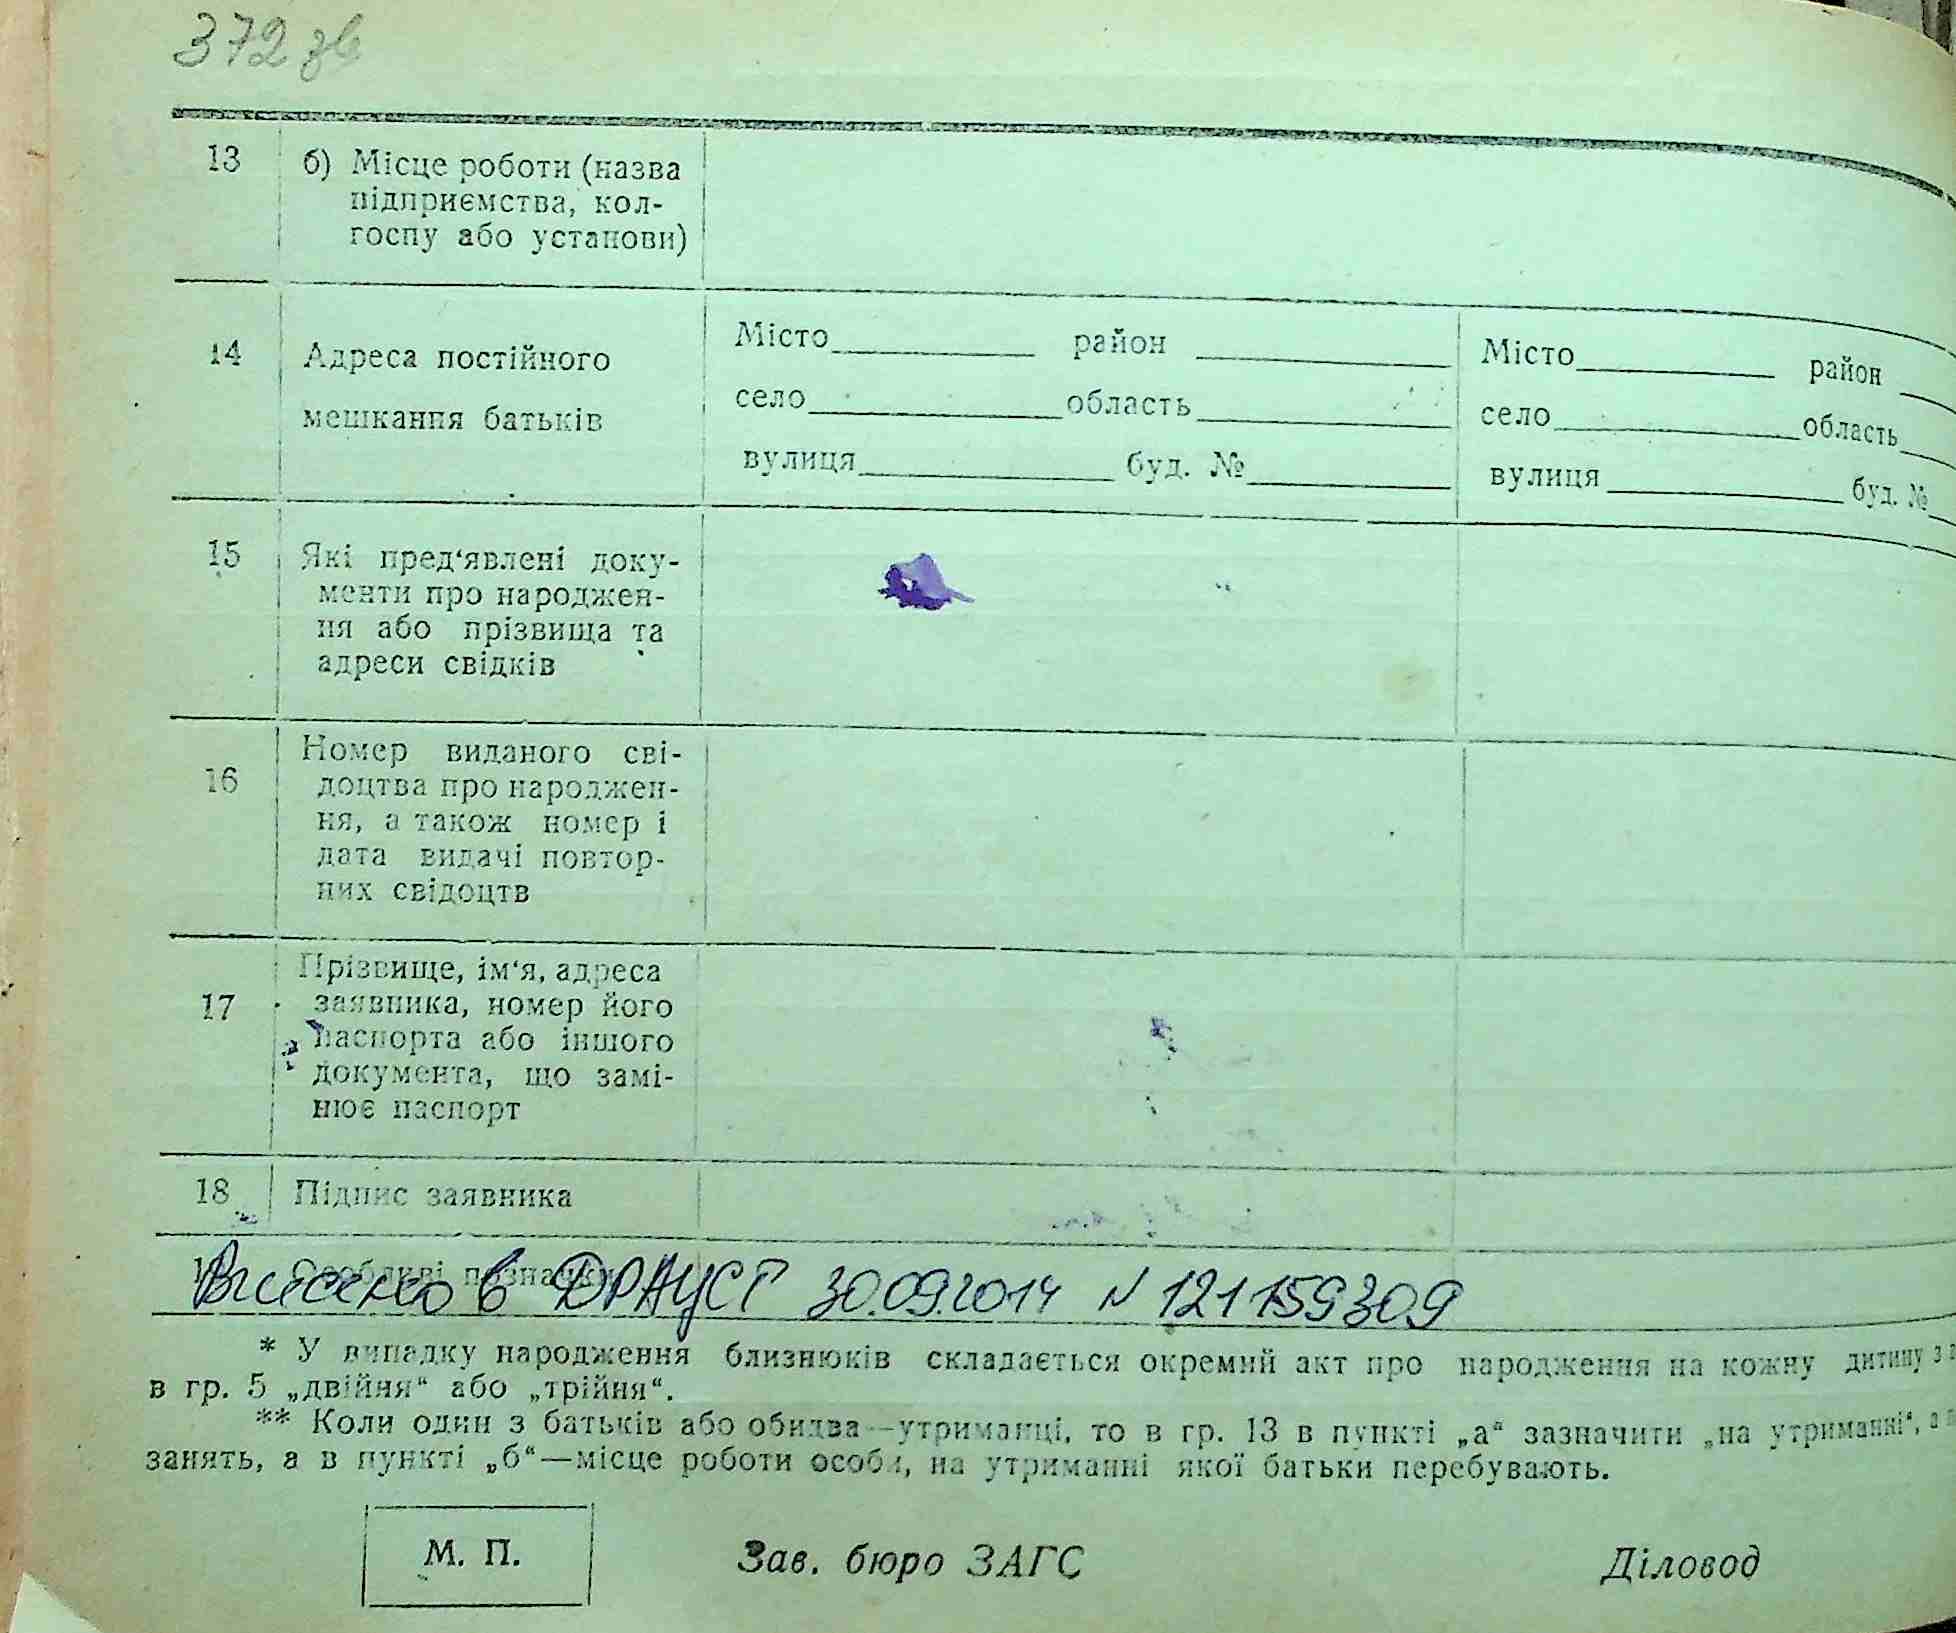 372 зв
13 б) Місце роботи (назва
підприємства, кол-
госпу або установи)
14 Адреса постійного
мешкання батьків
Місто район
село область
вулиця буд. №
Місто район
село область
вулиця буд. №
15 Які пред‘явлені доку-
менти про народжен-
ня або прізвища та
адреси свідків
16 Номер виданого сві-
доцтва про народжен-
ня, а також номер і
дата видачі повтор-
них свідоцтв
17 Прізвище, ім‘я, адреса
заявника, номер його
паспорта або іншого
документа, що замі-
нює паспорт
18 Підпис заявника
Особливі позначки
Внесено в ДРАЦСГ 30.09.2014 N 121159309
* У випадку народження близнюків складається окремий акт про народження на кожну дитину з
в гр. 5 „двійня“ або „трійня“.
** Коли один з батьків або обидва—утриманці, то в гр. 13 в пункті „а“ зазначити „на утриманні“, а
занять, а в пункті „б“—місце роботи особи, на утриманні якої батьки перебувають.
М. П. Зав. бюро ЗАГС Діловод